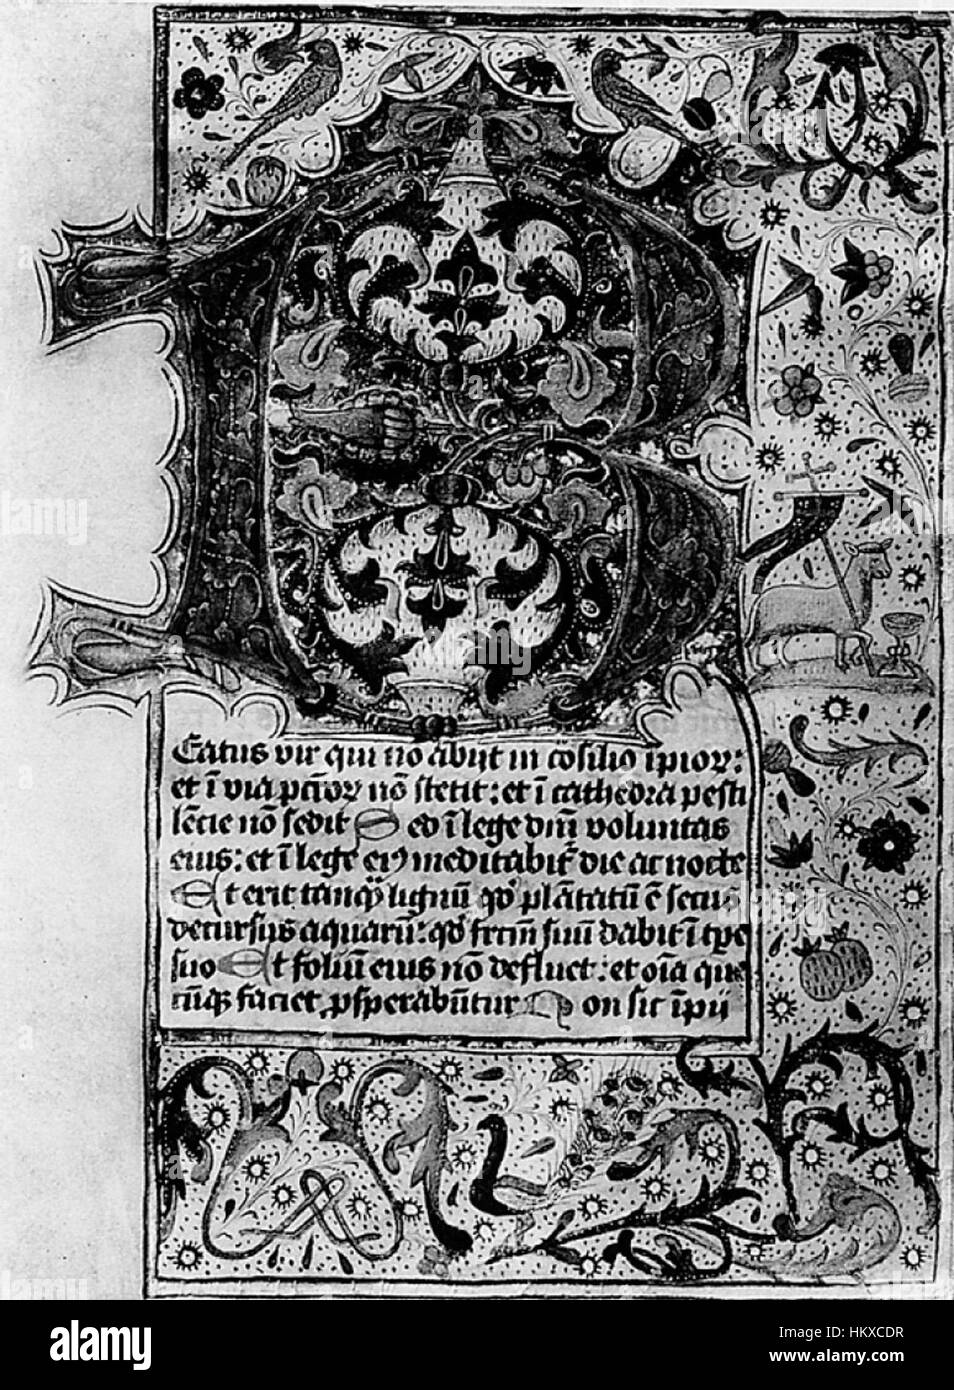 B
Eatus vir qui nō abijt in cōsilio īpior:
et ī via pctōr nō stetit: et ī cathedra pesti
lēcie nō sedit Sed ī lege dnī voluntas
eius: et ī lege eiꝰ meditabitr die ac nocte
Et erit tanqȝ lignū qd plātatū ē secus
decursus aquarū: qd frctm̄ suū dabit ī tpe
suo Et foliū eius nō defluet: et oīa que
cūqȝ faciet prosperabūtur Non sic īpij
alamy
Image ID: HKXCDR
www.alamy.com